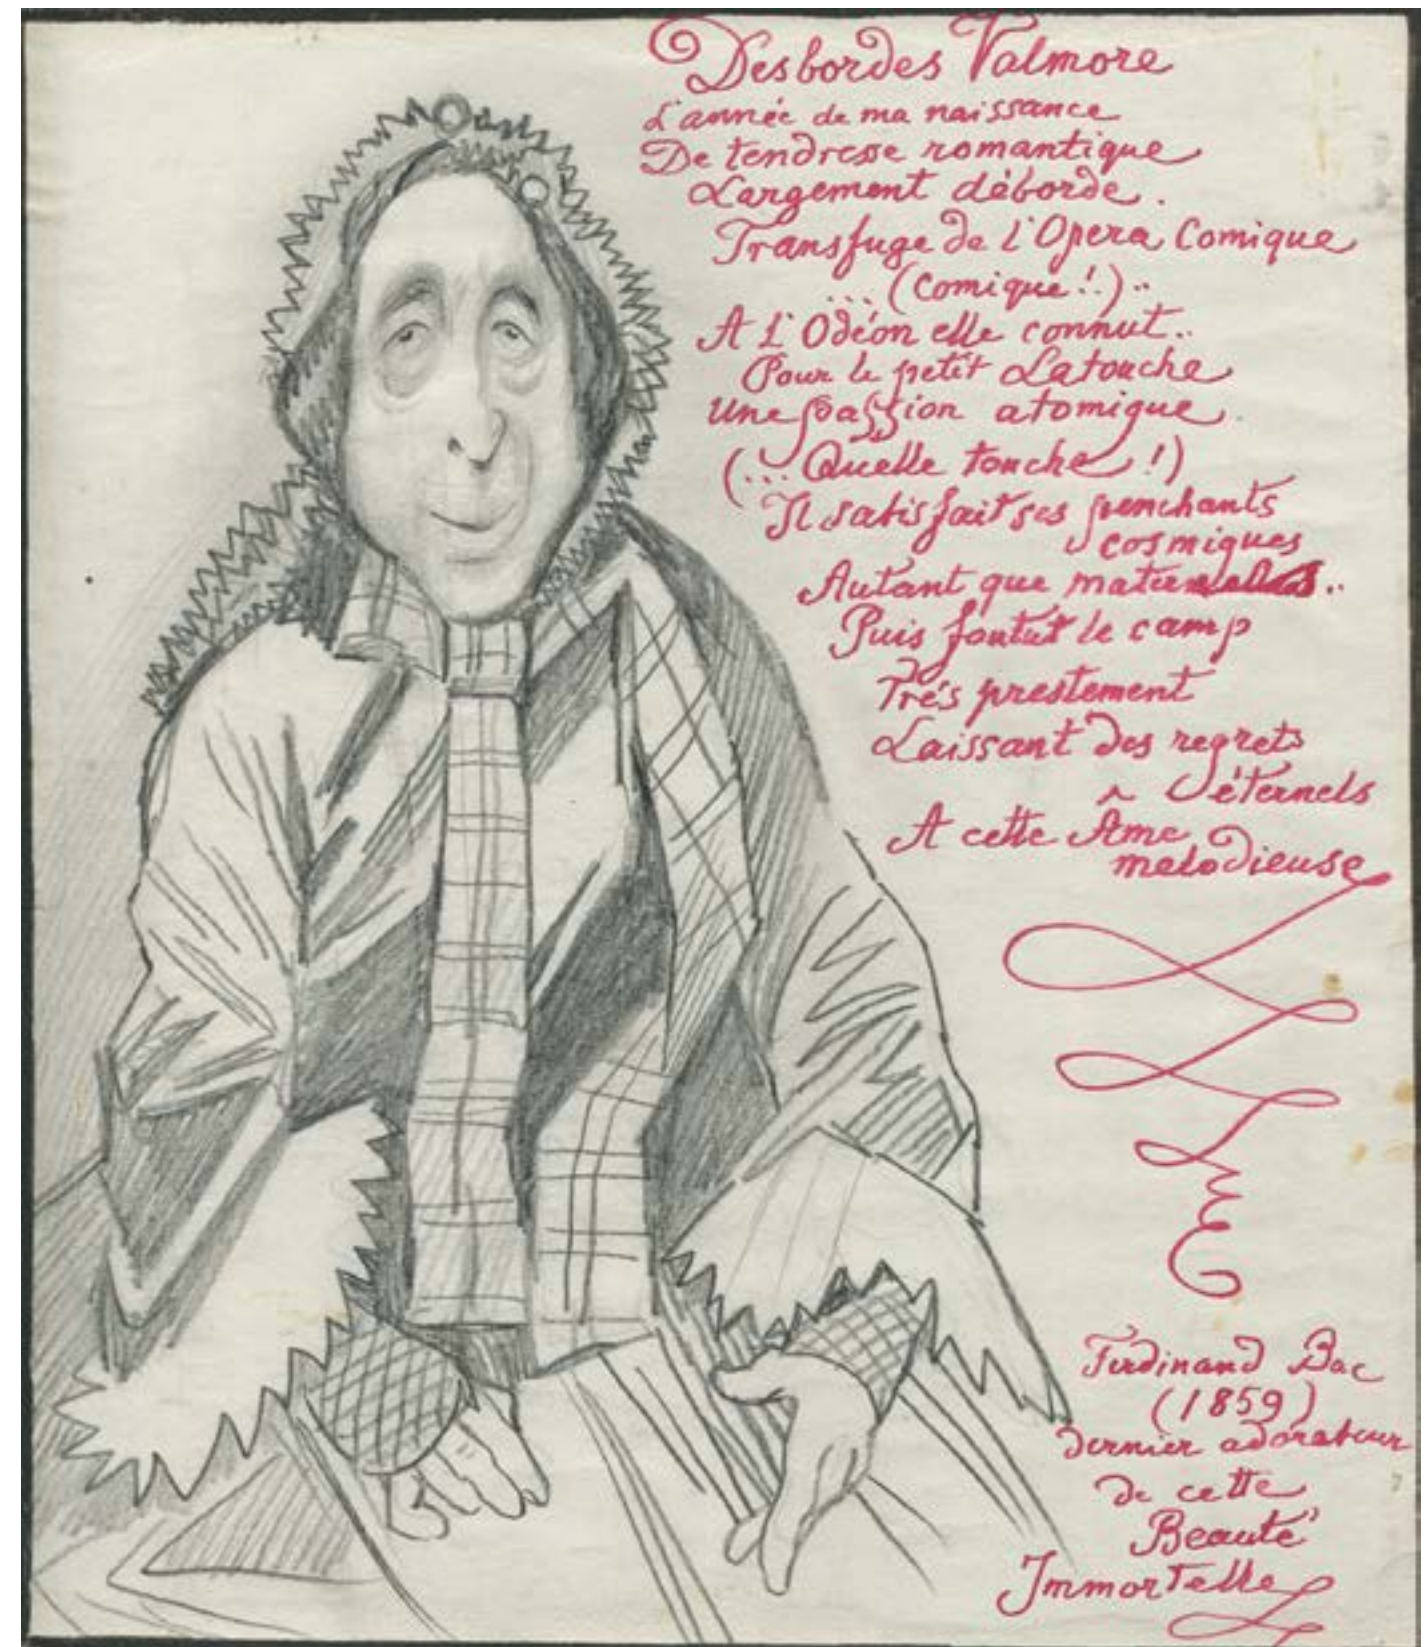 Desbordes Valmore
L'année de ma naissance
De tendresse romantique
Largement déborde.
Transfuge de l'Opera Comique
...(comique!.)..
A L'Odéon elle connut..
Pour le petit Latouche
Une passion atomique.
(... Quelle touche!)
Il satisfait ses penchants
cosmiques
Autant que maternels..
Puis foutut le camp
Très prestement
Laissant des regrets
éternels
A cette Âme
melodieuse
Ferdinand Bac
(1859)
dernier adorateur
de cette
Beauté
Immortelle